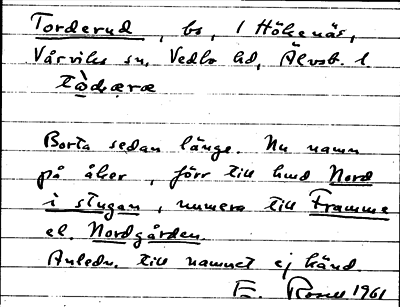 Torderud, bs, i Hökenäs,
Vårviks sn, Vedbo hd, Älvsb. l.
tòḍæræ
Borta sedan länge. Nu namn
på åker, förr till hmd Nord
i stugan, numera till Framme
el. Nordgården.
Anledn. till namnet ej känd.
E. Rosell 1961